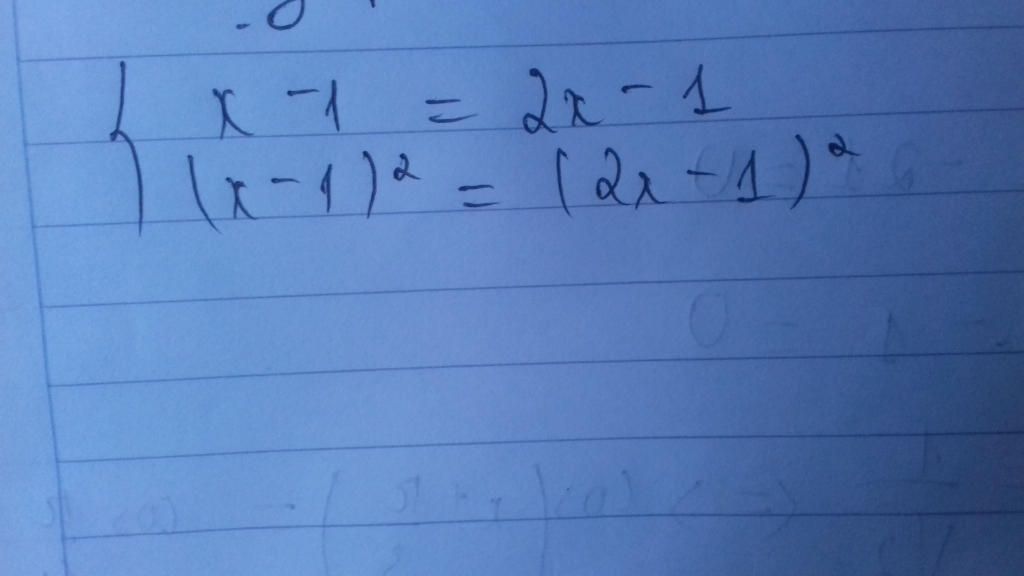 { x - 1 = 2x - 1
(x - 1)² = (2x - 1)²